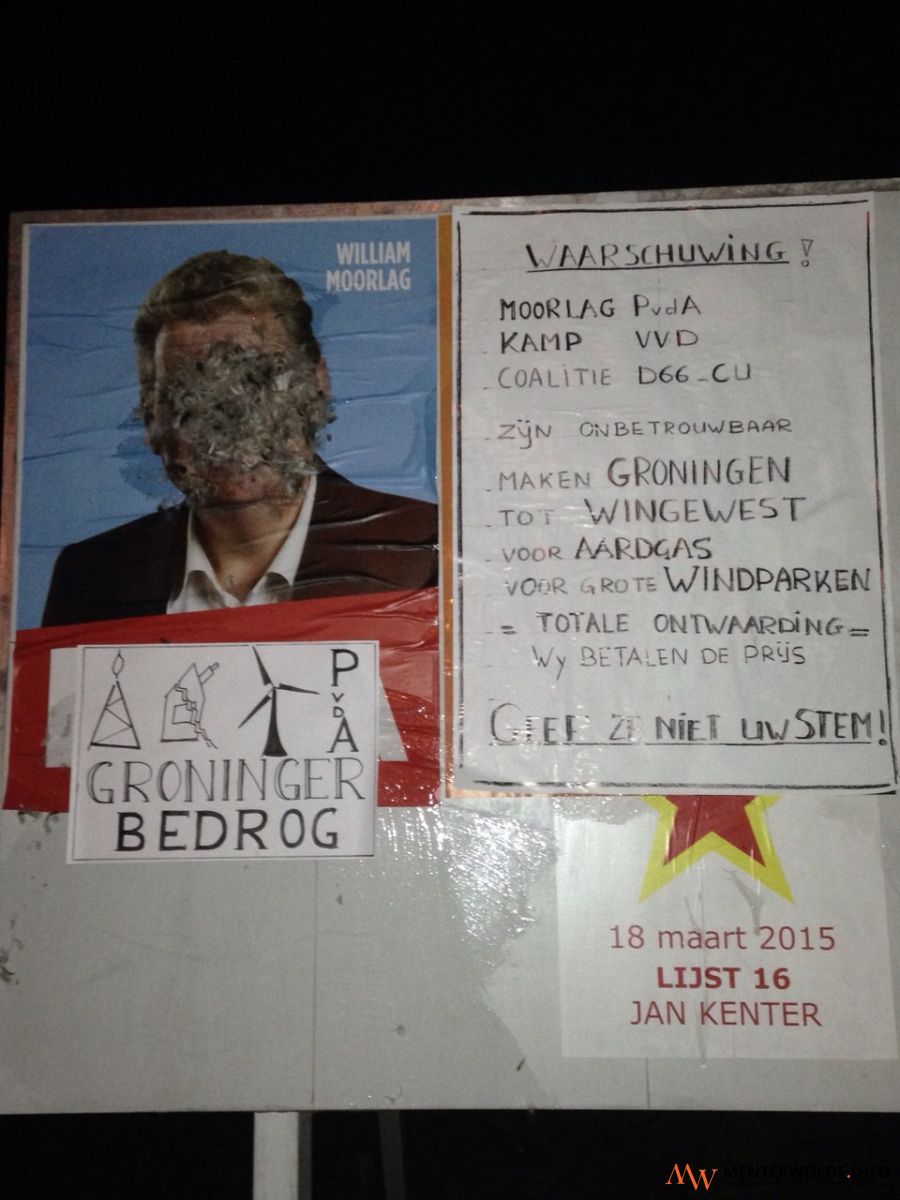 WILLIAM
MOORLAG
PvdA
GRONINGER
BEDROG
WAARSCHUWING!
MOORLAG PvdA
KAMP VVD
COALITIE D66-CU
ZIJN ONBETROUWBAAR
MAKEN GRONINGEN
TOT WINGEWEST
VOOR AARDGAS
VOOR GROTE WINDPARKEN
= TOTALE ONTWAARDING =
Wy BETALEN DE PRIJS
GEEF ZE NIET UW STEM!
18 maart 2015
LIJST 16
JAN KENTER
MW MENTERWOLDE.INFO